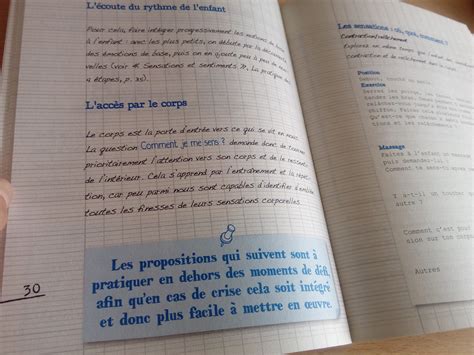 L'écoute du rythme de l'enfant
Pour cela, faire intégrer progressivement les notions de base
à l'enfant : avec les plus petits, on débute par la
des émotions de base, puis on en ajoute peu à peu de
velles (voir « Sensations et sentiments ». La pratique
4 étapes, p. 35).
L'accès par le corps
Le corps est la porte d'entrée vers ce qui se vit en nous.
La question Comment je me sens ? demande donc de
prioritairement l'attention vers son corps et de le
de l'intérieur. Cela s'apprend par l'entraînement et la répéti-
tion, car peu parmi nous sont capables d'identifier d'emblée
toutes les finesses de leurs sensations corporelles.
Les propositions qui suivent sont à
pratiquer en dehors des moments de défi,
afin qu'en cas de crise cela soit intégré
et donc plus facile à mettre en œuvre.
30
Les sensations : où, quoi, comment ?
Contraction/relâchement
Explorez en même temps que l'enfant
Position
Debout,
Exercice
Serrez les poings,
Massage
Faites à l'enfant un
puis demandez-lui :
Comment te sens-tu après
Y a-t-il un
autre ?
Comment c'est pour
sion sur ton corps
Autres